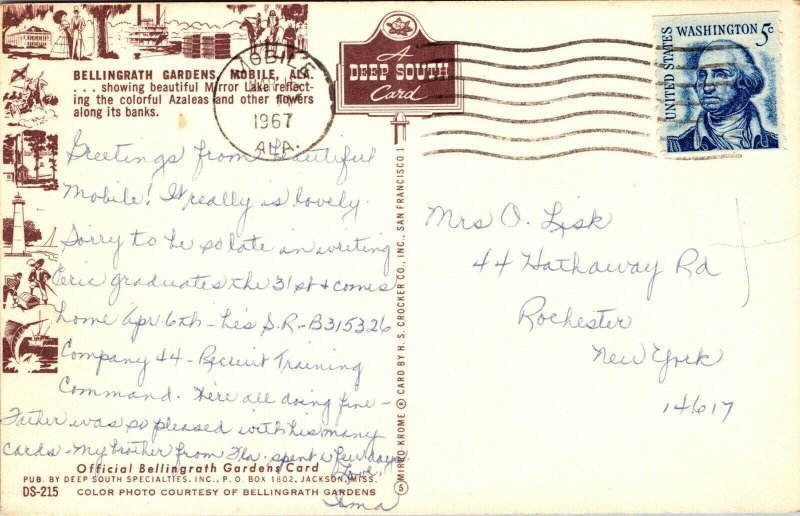 BELLINGRATH GARDENS, MOBILE, ALA.
. . . showing beautiful Mirror Lake reflect-
ing the colorful Azaleas and other flowers
along its banks.
A
DEEP SOUTH
Card
MOBILE
1967
ALA.
UNITED STATES
WASHINGTON 5c
Greetings from beautiful
Mobile! It really is lovely.
Sorry to be so late in writing
Eric graduates the 31st & comes
home Apr 6th - he's S.R.-B315326
Company 44 - Recruit Training
Command. We're all doing fine -
Father was so pleased with his many
cards - My brother from Fla. spent a few days.
Love,
Mrs O. Lisk
44 Hathaway Rd
Rochester
New York
14617
Official Bellingrath Gardens Card
PUB. BY DEEP SOUTH SPECIALTIES, INC., P. O. BOX 1802, JACKSON, MISS.
DS-215 COLOR PHOTO COURTESY OF BELLINGRATH GARDENS
5 MIRRO-KROME ® CARD BY H. S. CROCKER CO., INC., SAN FRANCISCO 1